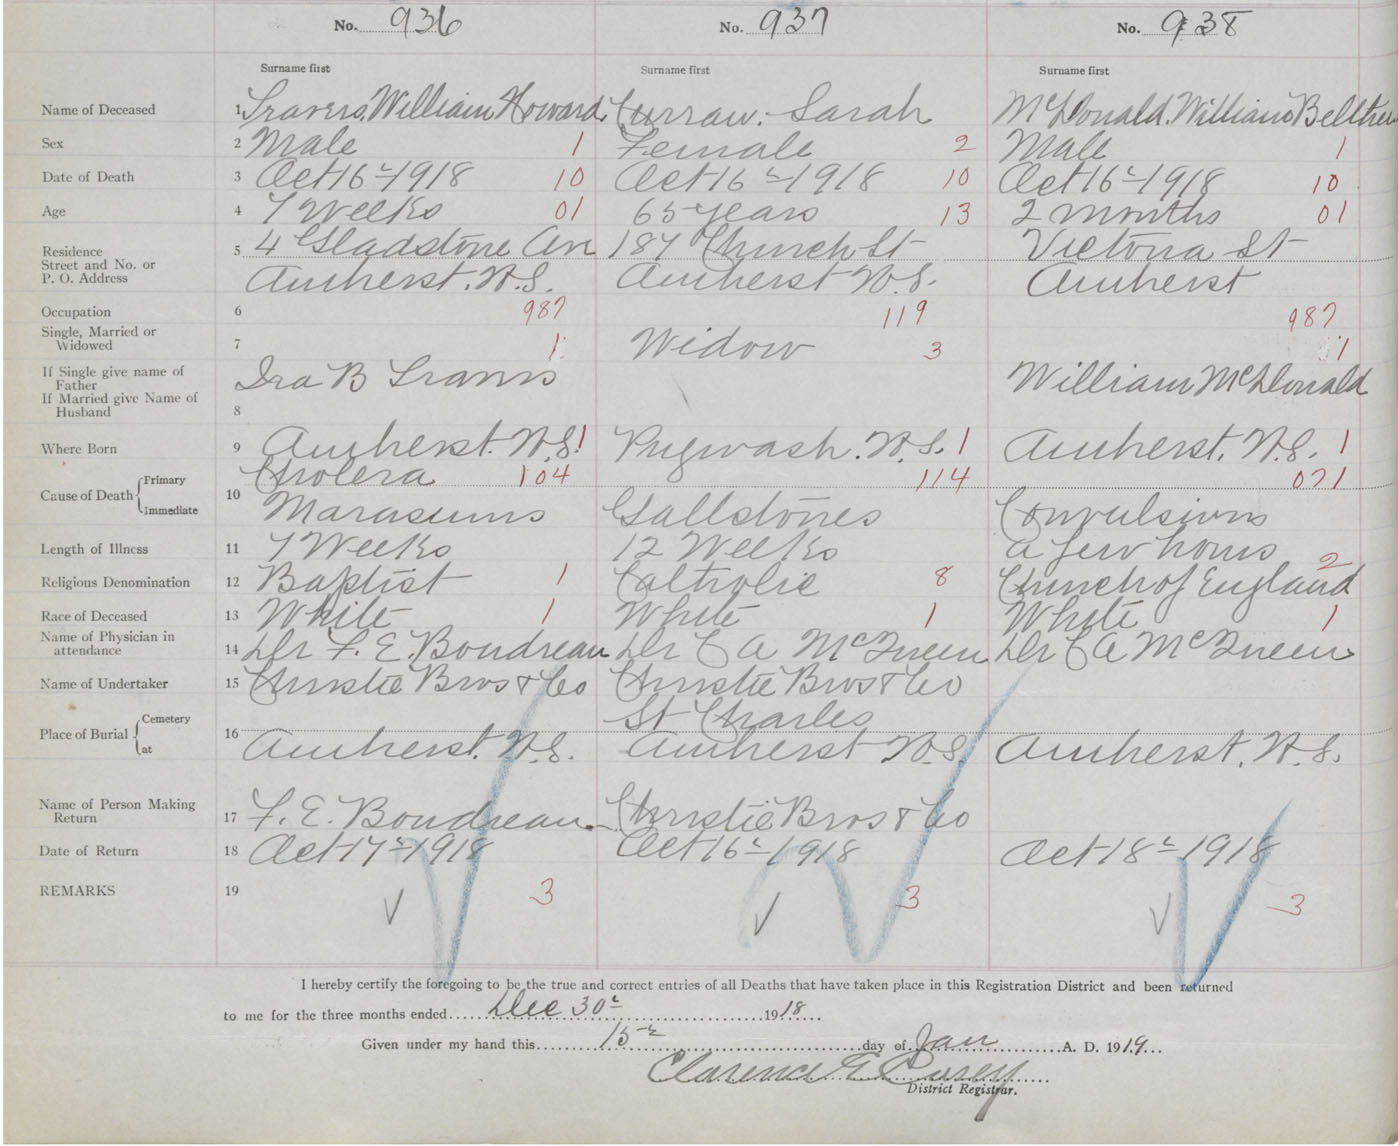 No. 936 No. 937 No. 938
Surname first Surname first Surname first
Name of Deceased 1 Travers, William Howard Curran, Sarah McDonald, William
Sex 2 Male 1 Female 2 Male 1
Date of Death 3 Oct 16th 1918 10 Oct 16th 1918 10 Oct 16th 1918 10
Age 4 7 Weeks 01 65 years 13 2 months 01
Residence 5 4 Gladstone Av 187 Church St Victoria St
Street and No. or
P. O. Address Amherst. N.S. Amherst N.S. Amherst
Occupation 6 987 119 987
Single, Married or
Widowed 7 1 Widow 3 1
If Single give name of
Father Ira B Travers William McDonald
If Married give Name of
Husband 8
Where Born 9 Amherst. N.S. 1 Pugwash. N.S. 1 Amherst. N.S. 1
Cause of Death Primary Cholera 104 114 071
Immediate 10 Marasmus Gallstones Convulsions
Length of Illness 11 7 Weeks 12 Weeks a few hours
Religious Denomination 12 Baptist 1 Catholic 8 Church of England 2
Race of Deceased 13 White 1 White 1 White 1
Name of Physician in
attendance 14 Dr F. E. Boudreau Dr C A McQueen Dr C A McQueen
Name of Undertaker 15 Christie Bros & Co Christie Bros & Co
Place of Burial Cemetery 16 St Charles
at Amherst. N.S. Amherst N.S. Amherst. N.S.
Name of Person Making
Return 17 F. E. Boudreau Christie Bros & Co
Date of Return 18 Oct 17th 1918 Oct 16th 1918 Oct 18th 1918
REMARKS 19 3 3 3
I hereby certify the foregoing to be the true and correct entries of all Deaths that have taken place in this Registration District and been returned
to me for the three months ended Dec 30th 1918
Given under my hand this 15th day of Jan A. D. 1919
Clarence E Casey
District Registrar.